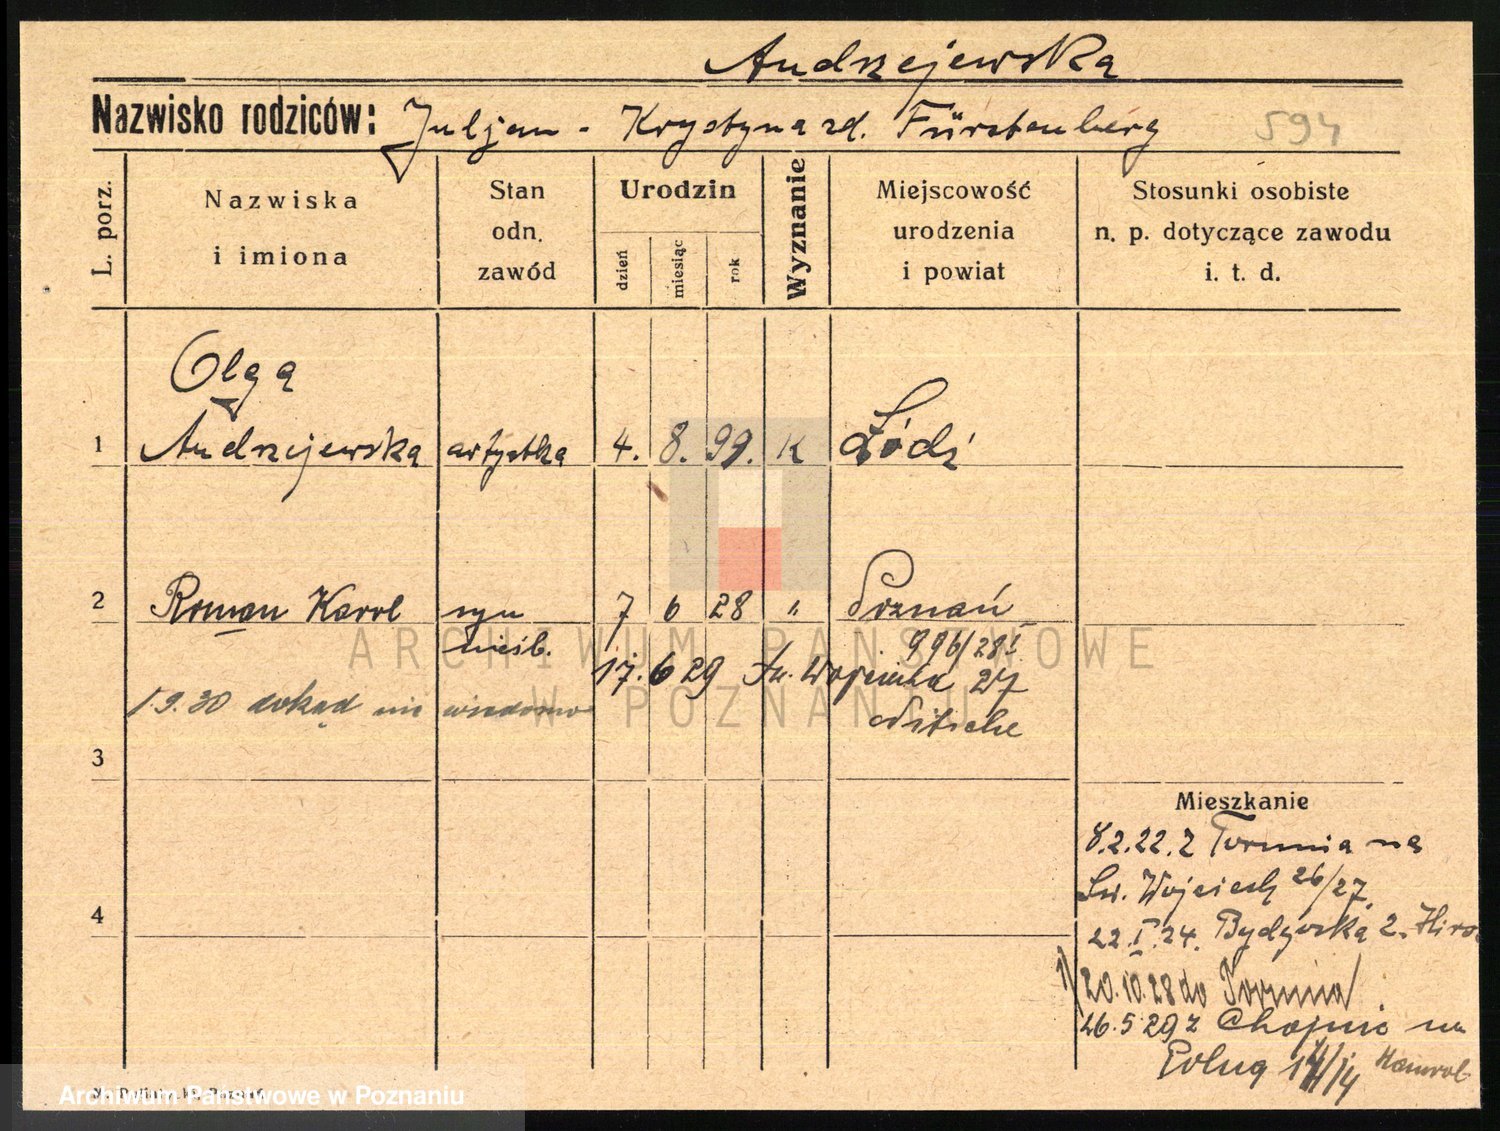 Andrzejewska
Nazwisko rodziców: Juljan - Krystyna zd. Fürstenberg 594
L. porz.
Nazwiska
i imiona
Stan
odn.
zawód
Urodzin
dzień
miesiąc
rok
Wyznanie
Miejscowość
urodzenia
i powiat
Stosunki osobiste
n. p. dotyczące zawodu
i. t. d.
Olga
1 Andrzejewska artystka 4. 8. 99. K Łódź
2 Roman Karol syn 7 6 28 " Poznań
nieśl. 996/28
17. 6 29 Św. Wojciecha 27
1.9.30 dokąd nie wiadomo Nitsche
3
Mieszkanie
8.2.22. z Torunia na
Św. Wojciech 26/27.
4
22.I.24. Bydgoska 2.
20.10.28 do Torunia
26.5 29 z Chojnic na
14
ARCHIWUM PAŃSTWOWE
W POZNANIU
Archiwum Państwowe w Poznaniu